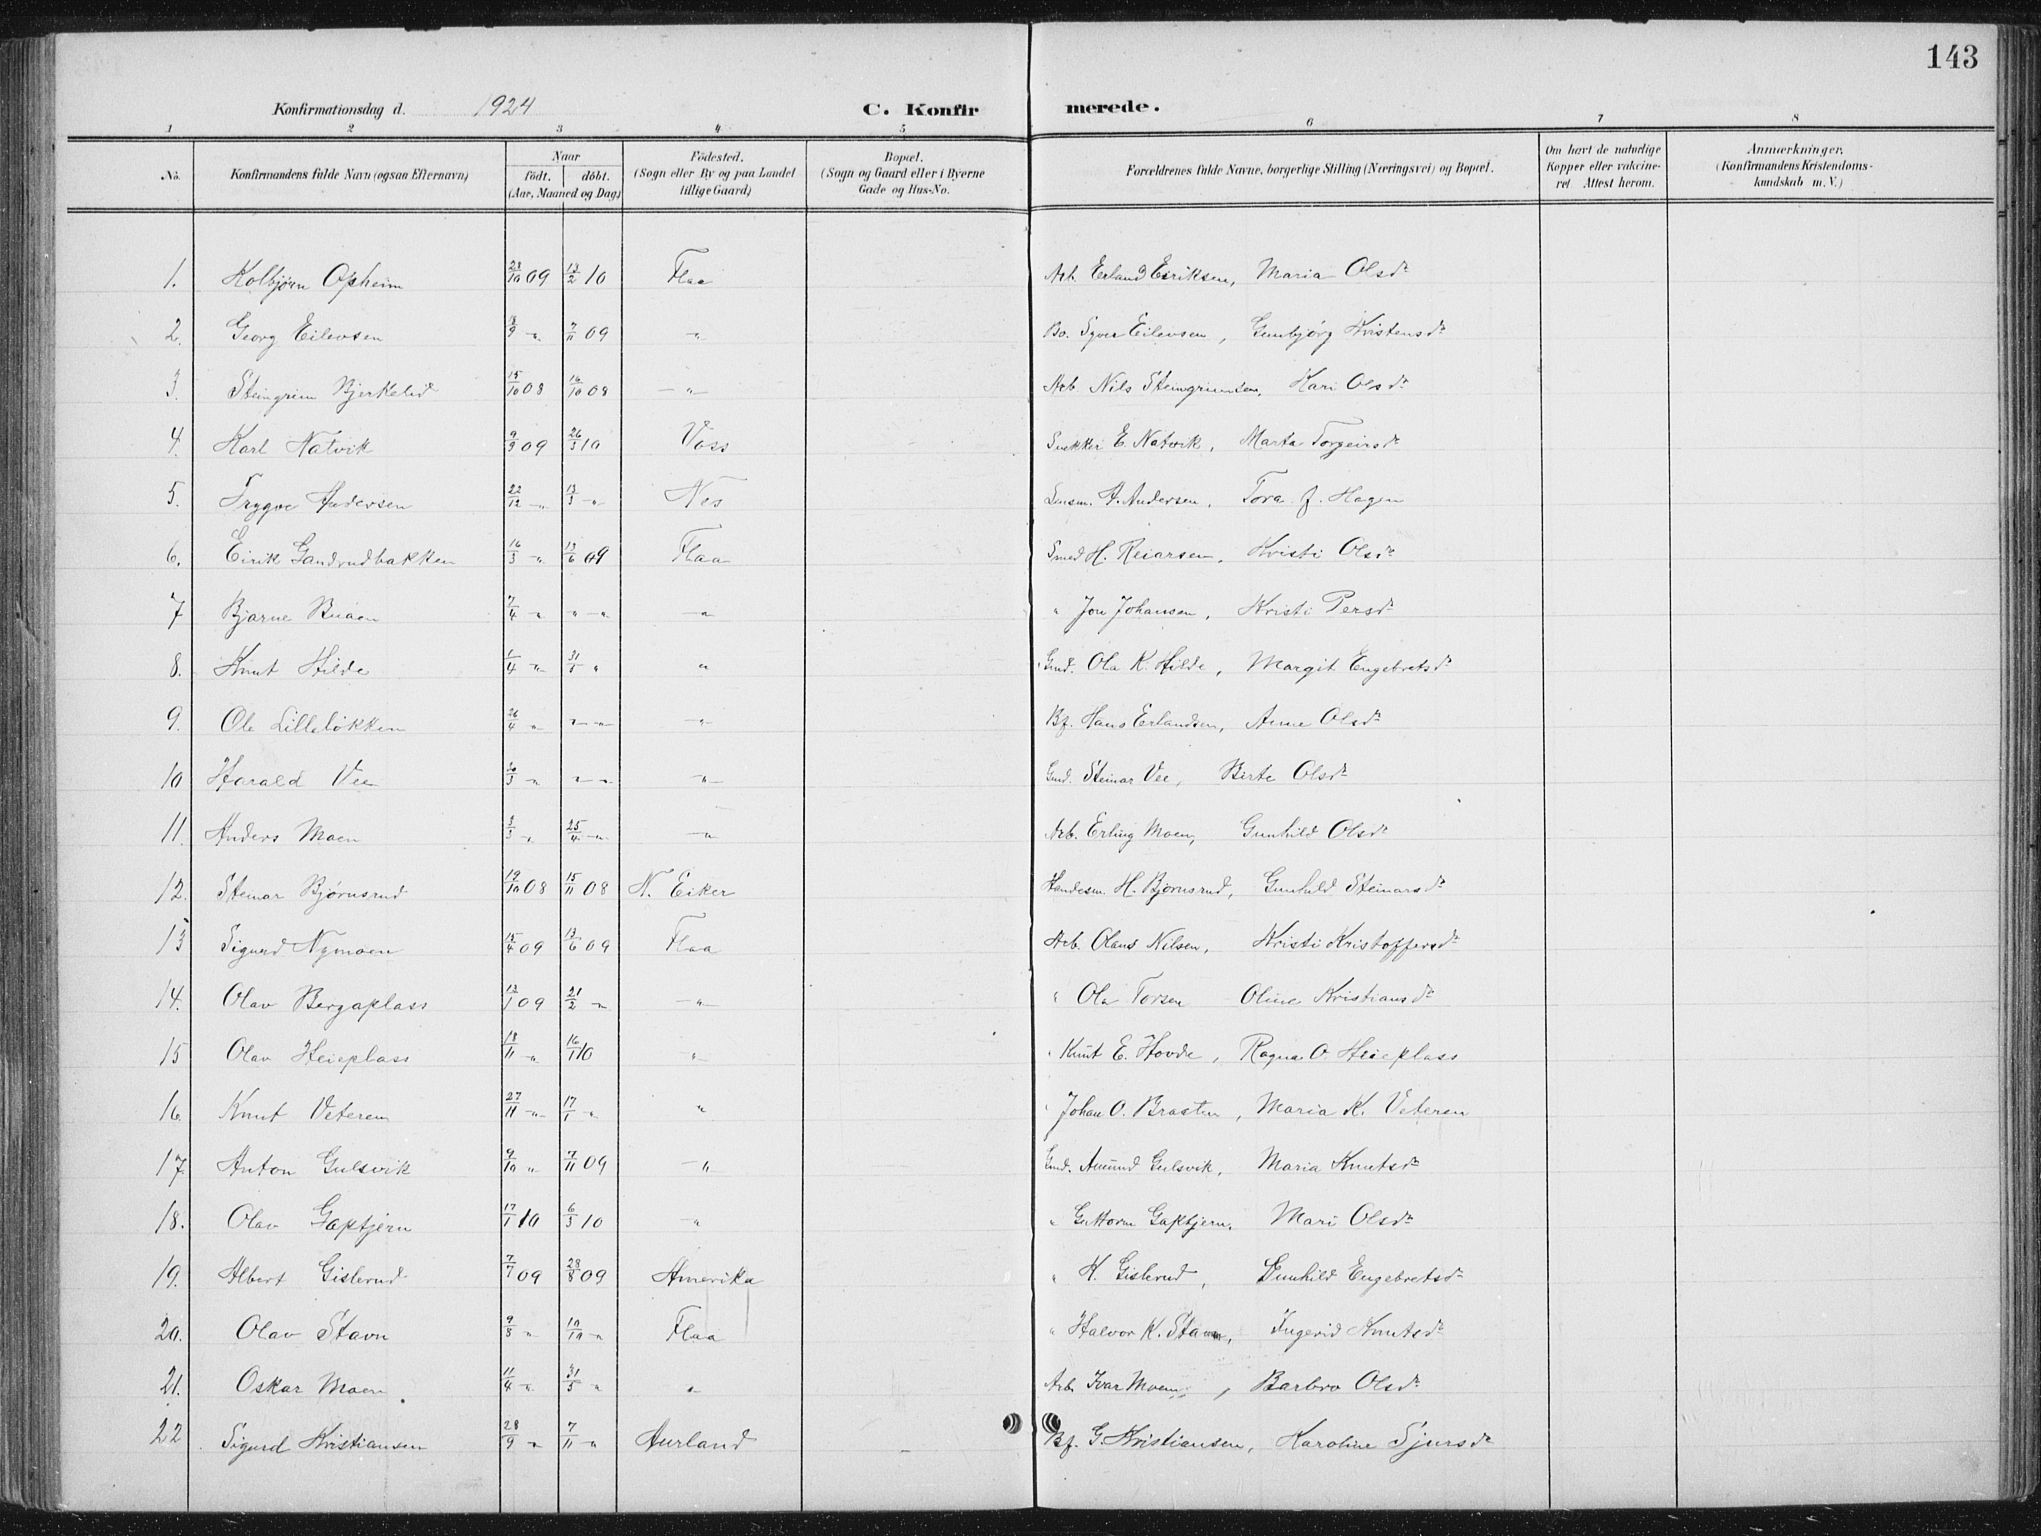 143
Konfirmationsdag d. 1924 C. Konfirmerede.
1 2 3 4 5 6 7 8
No. Konfirmandens fulde Navn (ogsaa Efternavn) Naar født. døbt. (Aar, Maaned og Dag) Födested. (Sogn eller By og paa Landet tillige Gaard) Bopæl. (Sogn og Gaard eller i Byerne Gade og Hus-No. Forældrenes fulde Navne, borgerlige Stilling (Næringsvei) og Bopæl. Om havt de naturlige Kopper eller vaccineret Attest herom. Anmærkninger. (Konfirmandens Kristendomskundskab m. V.)
1. Kolbjörn Opheim 28/10 09 13/2 10 Flaa Arb. Erland Eriksen, Maria Olsdr
2. Georg Eilevsen 18/9 " 7/11 09 " Bo. Syver Eilevsen, Gunbjörg Kristensdr
3. Steingrim Bjerkelid 15/10 08 16/10 08 — " Arb Nils Steingrimsen, Kari Olsdr
4. Karl Natvik 9/9 09 26/3 10 Voss Snekker E. Natvik, Marta Torgeirsdr
5. Trygve Andersen 22/12 " 13/3 " Nes Lensm. A. Andersen, Tora J. Hagen
6. Eirik Gandrudbakken 16/3 " 13/6 09 Flaa Smed H. Reiarsen, Kristi Olsdr
7 Bjarne Buaen 7/4 " " " " " Jon Johansen, Kristi Persdr
8. Knut Hilde 1/4 " 31/5 " " Gmd. Ola K. Hilde, Margit Engebretsdr
9. Ole Lillelökken 26/4 " " " " Bf. Hans Erlandsen, Anne Olsdr
10 Harald Vee 30/3 " " " " Gmd. Steinar Vee, Birte Olsdr
11. Anders Moen 3/3 " 25/4 " " Arb. Erling Moen, Gunhild Olsdr
12. Steinar Bjørnsrud 19/10 08 15/11 08 N. Eiker Handesm. H. Bjørnsrud, Gunhild Steinarsdr
13 Sigurd Nymoen 15/4 09 13/6 09 Flaa Arb. Olaus Nilsen, Kristi Kristoffersdr
14. Olav Bergaplass 13/1 09 21/2 " " " Ola Torsen Oline Kristiansdr
15 Olav Heieplass 18/11 " 16/1 10 " " Knut E. Hovde, Ragna O. Heieplass
16. Knut Veteren 27/11 " 17/1 " " " Johan O. Braaten, Maria K. Veteren
17. Anton Gulsvik 9/10 " 7/11 09 " Gmd. Amund Gulsvik, Maria Knutsdr
18. Olav Gaptjern 17/1 10 6/3 10 " " Guttorm Gaptjern, Mari Olsdr
19. Albert Gislerud 7/7 09 28/8 09 Amerika " K. Gislerud, Gunhild Engebretsdr
20. Olav Stavn 9/8 " 10/10 " Flaa " Halvor K. Stavn, Ingerid Knutsdr
21. Oskar Moen 11/4 " 31/5 " " Arb. Ivar Moen, Barbro Olsdr
22 Sigurd Kristiansen 28/9 " 7/11 " Aurland Bf. G. Kristiansen, Karoline Sjursdr